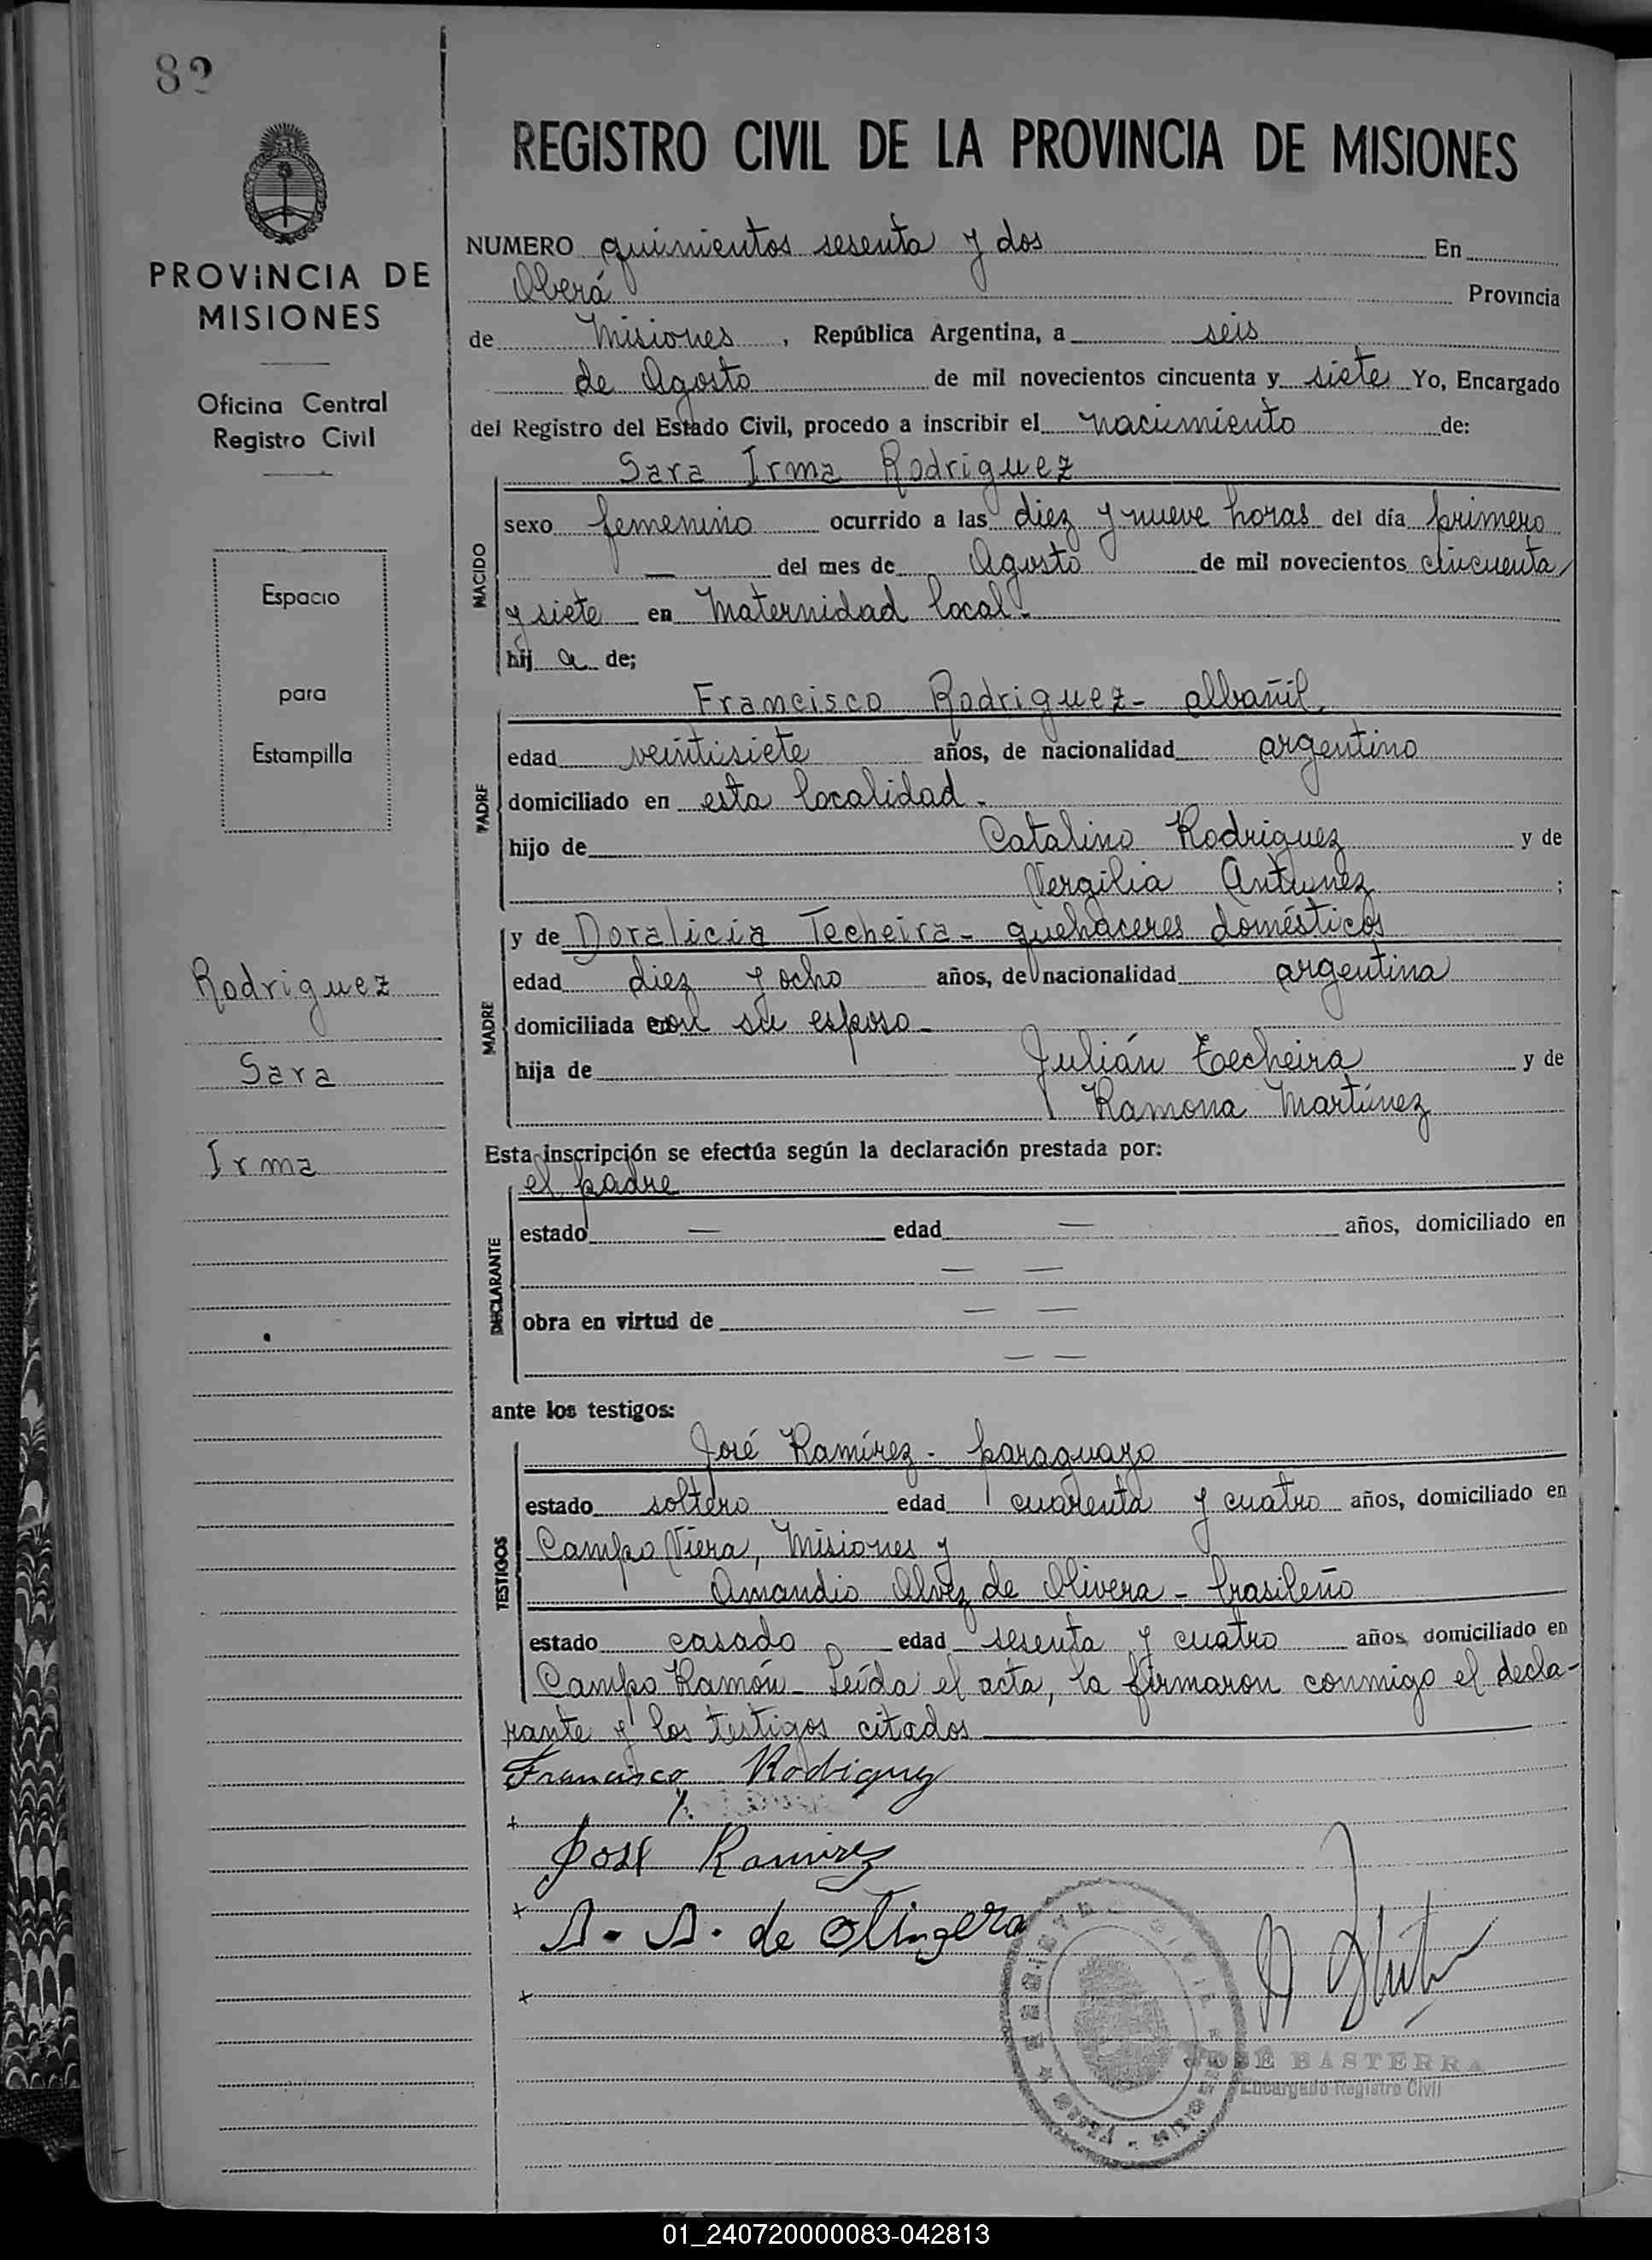 82
REGISTRO CIVIL DE LA PROVINCIA DE MISIONES
PROVINCIA DE
MISIONES
Oficina Central
Registro Civil
Espacio
para
Estampilla
Rodriguez
Sara
Irma
NUMERO quinientos sesenta y dos En
Oberá Provincia
de Misiones, República Argentina, a seis
de Agosto de mil novecientos cincuenta y siete Yo, Encargado
del Registro del Estado Civil, procedo a inscribir el nacimiento de:
NACIDO
Sara Irma Rodriguez
sexo femenino ocurrido a las diez y nueve horas del día primero
— del mes de Agosto de mil novecientos cincuenta
y siete en Maternidad local.-
hij a de;
PADRE
Francisco Rodriguez - albañil,
edad veintisiete años, de nacionalidad argentino
domiciliado en esta localidad.-
hijo de Catalino Rodriguez y de
Vergilia Antunez ;
MADRE
y de Doralicia Techeira - quehaceres domésticos
edad diez y ocho años, de nacionalidad argentina
domiciliada con su esposo -
hija de Julián Techeira y de
Ramona Martínez
Esta inscripción se efectúa según la declaración prestada por:
DECLARANTE
el padre
estado — edad — años, domiciliado en
— —
obra en virtud de — —
— —
ante los testigos:
TESTIGOS
José Ramírez - paraguayo
estado soltero edad cuarenta y cuatro años, domiciliado en
Campo Viera, Misiones y
Amandio Alvez de Olivera - brasileño
estado casado edad sesenta y cuatro años, domiciliado en
Campo Ramón - Leída el acta, la firmaron conmigo el decla-
rante y los testigos citados
Francisco Rodiguez
+
José Ramirez
+
A. A. de Olingera
+
JOSÉ BASTERRA
Encargado Registro Civil
01_240720000083-042813